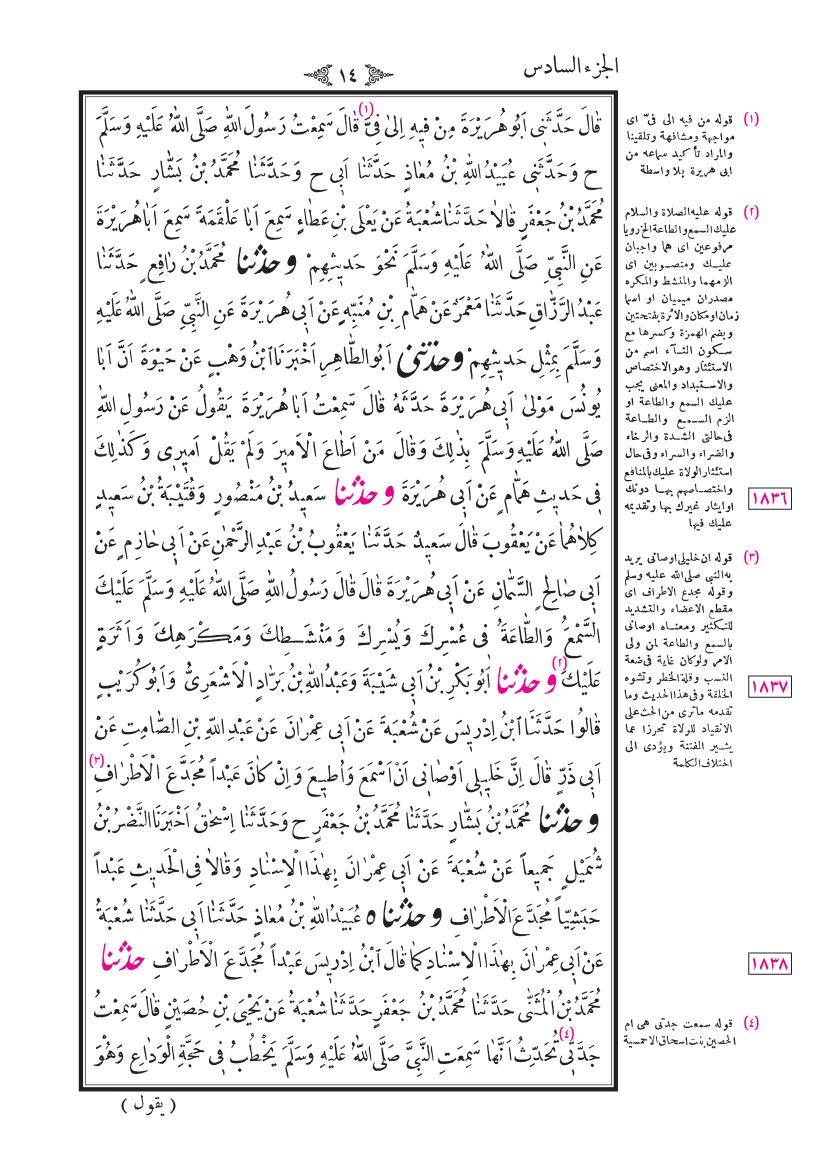 الجزء السادس
١٤
قَالَ حَدَّثَنِى اَبُو هُرَيْرَةَ مِنْ فِيهِ اِلىٰ فِىَّ (١) قَالَ سَمِعْتُ رَسُولَ اللّٰهِ صَلَّى اللّٰهُ عَلَيْهِ وَسَلَّمَ
ح وَحَدَّثَنِى عُبَيْدُ اللّٰهِ بْنُ مُعَاذٍ حَدَّثَنَا اَبِى ح وَحَدَّثَنَا مُحَمَّدُ بْنُ بَشَّارٍ حَدَّثَنَا
مُحَمَّدُ بْنُ جَعْفَرٍ قَالاَ حَدَّثَنَا شُعْبَةُ عَنْ يَعْلَى بْنِ عَطَاءٍ سَمِعَ اَبَا عَلْقَمَةَ سَمِعَ اَبَا هُرَيْرَةَ
عَنِ النَّبِيِّ صَلَّى اللّٰهُ عَلَيْهِ وَسَلَّمَ نَحْوَ حَدِيثِهِمْ وحدّثنا مُحَمَّدُ بْنُ رَافِعٍ حَدَّثَنَا
عَبْدُ الرَّزَّاقِ حَدَّثَنَا مَعْمَرٌ عَنْ هَمَّامِ بْنِ مُنَبِّهٍ عَنْ اَبِى هُرَيْرَةَ عَنِ النَّبِيِّ صَلَّى اللّٰهُ عَلَيْهِ
وَسَلَّمَ بِمِثْلِ حَدِيثِهِمْ وحدّثنى اَبُو الطَّاهِرِ اَخْبَرَنَا ابْنُ وَهْبٍ عَنْ حَيْوَةَ اَنَّ اَبَا
يُونُسَ مَوْلىٰ اَبِى هُرَيْرَةَ حَدَّثَهُ قَالَ سَمِعْتُ اَبَا هُرَيْرَةَ يَقُولُ عَنْ رَسُولِ اللّٰهِ
صَلَّى اللّٰهُ عَلَيْهِ وَسَلَّمَ بِذٰلِكَ وَقَالَ مَنْ اَطَاعَ الْاَمِيرَ وَلَمْ يَقُلْ اَمِيرِى وَكَذٰلِكَ
فِى حَدِيثِ هَمَّامٍ عَنْ اَبِى هُرَيْرَةَ وحدّثنا سَعِيدُ بْنُ مَنْصُورٍ وَقُتَيْبَةُ بْنُ سَعِيدٍ
كِلَاهُمَا عَنْ يَعْقُوبَ قَالَ سَعِيدٌ حَدَّثَنَا يَعْقُوبُ بْنُ عَبْدِ الرَّحْمٰنِ عَنْ اَبِى حَازِمٍ عَنْ
اَبِى صَالِحٍ السَّمَّانِ عَنْ اَبِى هُرَيْرَةَ قَالَ قَالَ رَسُولُ اللّٰهِ صَلَّى اللّٰهُ عَلَيْهِ وَسَلَّمَ عَلَيْكَ
السَّمْعُ وَالطَّاعَةُ فِى عُسْرِكَ وَيُسْرِكَ وَمَنْشَطِكَ وَمَكْرَهِكَ وَاَثَرَةٍ
عَلَيْكَ (٢) وحدّثنا اَبُو بَكْرِ بْنُ اَبِى شَيْبَةَ وَعَبْدُ اللّٰهِ بْنُ بَرَّادٍ الْاَشْعَرِىُّ وَاَبُو كُرَيْبٍ
قَالُوا حَدَّثَنَا ابْنُ اِدْرِيسَ عَنْ شُعْبَةَ عَنْ اَبِى عِمْرَانَ عَنْ عَبْدِ اللّٰهِ بْنِ الصَّامِتِ عَنْ
اَبِى ذَرٍّ قَالَ اِنَّ خَلِيلِى اَوْصَانِى اَنْ اَسْمَعَ وَاُطِيعَ وَاِنْ كَانَ عَبْداً مُجَدَّعَ الْاَطْرَافِ (٣)
وحدّثنا مُحَمَّدُ بْنُ بَشَّارٍ حَدَّثَنَا مُحَمَّدُ بْنُ جَعْفَرٍ ح وَحَدَّثَنَا اِسْحٰقُ اَخْبَرَنَا النَّضْرُ بْنُ
شُمَيْلٍ جَمِيعاً عَنْ شُعْبَةَ عَنْ اَبِى عِمْرَانَ بِهٰذَا الْاِسْنَادِ وَقَالاَ فِى الْحَدِيثِ عَبْداً
حَبَشِيّاً مُجَدَّعَ الْاَطْرَافِ وحدّثناه عُبَيْدُ اللّٰهِ بْنُ مُعَاذٍ حَدَّثَنَا اَبِى حَدَّثَنَا شُعْبَةُ
عَنْ اَبِى عِمْرَانَ بِهٰذَا الْاِسْنَادِ كَمَا قَالَ ابْنُ اِدْرِيسَ عَبْداً مُجَدَّعَ الْاَطْرَافِ حدّثنا
مُحَمَّدُ بْنُ الْمُثَنَّى حَدَّثَنَا مُحَمَّدُ بْنُ جَعْفَرٍ حَدَّثَنَا شُعْبَةُ عَنْ يَحْيَى بْنِ حُصَيْنٍ قَالَ سَمِعْتُ
جَدَّتِى (٤) تُحَدِّثُ اَنَّهَا سَمِعَتِ النَّبِيَّ صَلَّى اللّٰهُ عَلَيْهِ وَسَلَّمَ يَخْطُبُ فِى حَجَّةِ الْوَدَاعِ وَهُوَ
( يقول )
(١) قوله من فيه الى فىّ اى
مواجهة ومشافهة وتلقينا
والمراد تأكيد سماعه من
ابى هريرة بلا واسطة
(٢) قوله عليه الصلاة والسلام
عليك السمع والطاعة الخ رويا
مرفوعين اى هما واجبان
عليك ومنصوبين اى
الزمهما والمنشط والمكره
مصدران ميميان او اسما
زمان او مكان والاثرة بفتحتين
وبضم الهمزة وكسرها مع
سكون الثاء اسم من
الاستئثار وهو الاختصاص
والاستبداد والمعنى يجب
عليك السمع والطاعة او
الزم السمع والطاعة
فى حالتى الشدة والرخاء
والضراء والسراء وفى حال
استئثار الولاة عليك بالمنافع
واختصاصهم بها دونك
او ايثار غيرك بها وتقديمه
عليك فيها
(٣) قوله ان خليلى اوصانى يريد
به النبى صلى الله عليه وسلم
وقوله مجدع الاطراف اى
مقطع الاعضاء والتشديد
للتكثير ومعناه اوصانى
بالسمع والطاعة لمن ولى
الامر ولو كان غاية فى ضعة
النسب وقلة الخطر وتشوه
الخلقة وفى هذا الحديث وما
تقدمه ما ترى من الحث على
الانقياد للولاة تحرزا عما
يثير الفتنة ويؤدى الى
اختلاف الكلمة
(٤) قوله سمعت جدتى هى ام
الحصين بنت اسحاق الاحمسية
١٨٣٦
١٨٣٧
١٨٣٨